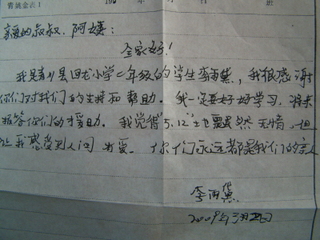 亲爱的叔叔、阿姨:
全家好!
我是县回龙小学二年级的学生李雨巽,我很感谢
你们对我们的支持和帮助。我一定要好好学习,将来
报答你们的援助。我觉得5.12地震虽然无情,但
让我感受到人间有爱。你们永远都是我们的亲人
李雨
2009年3月